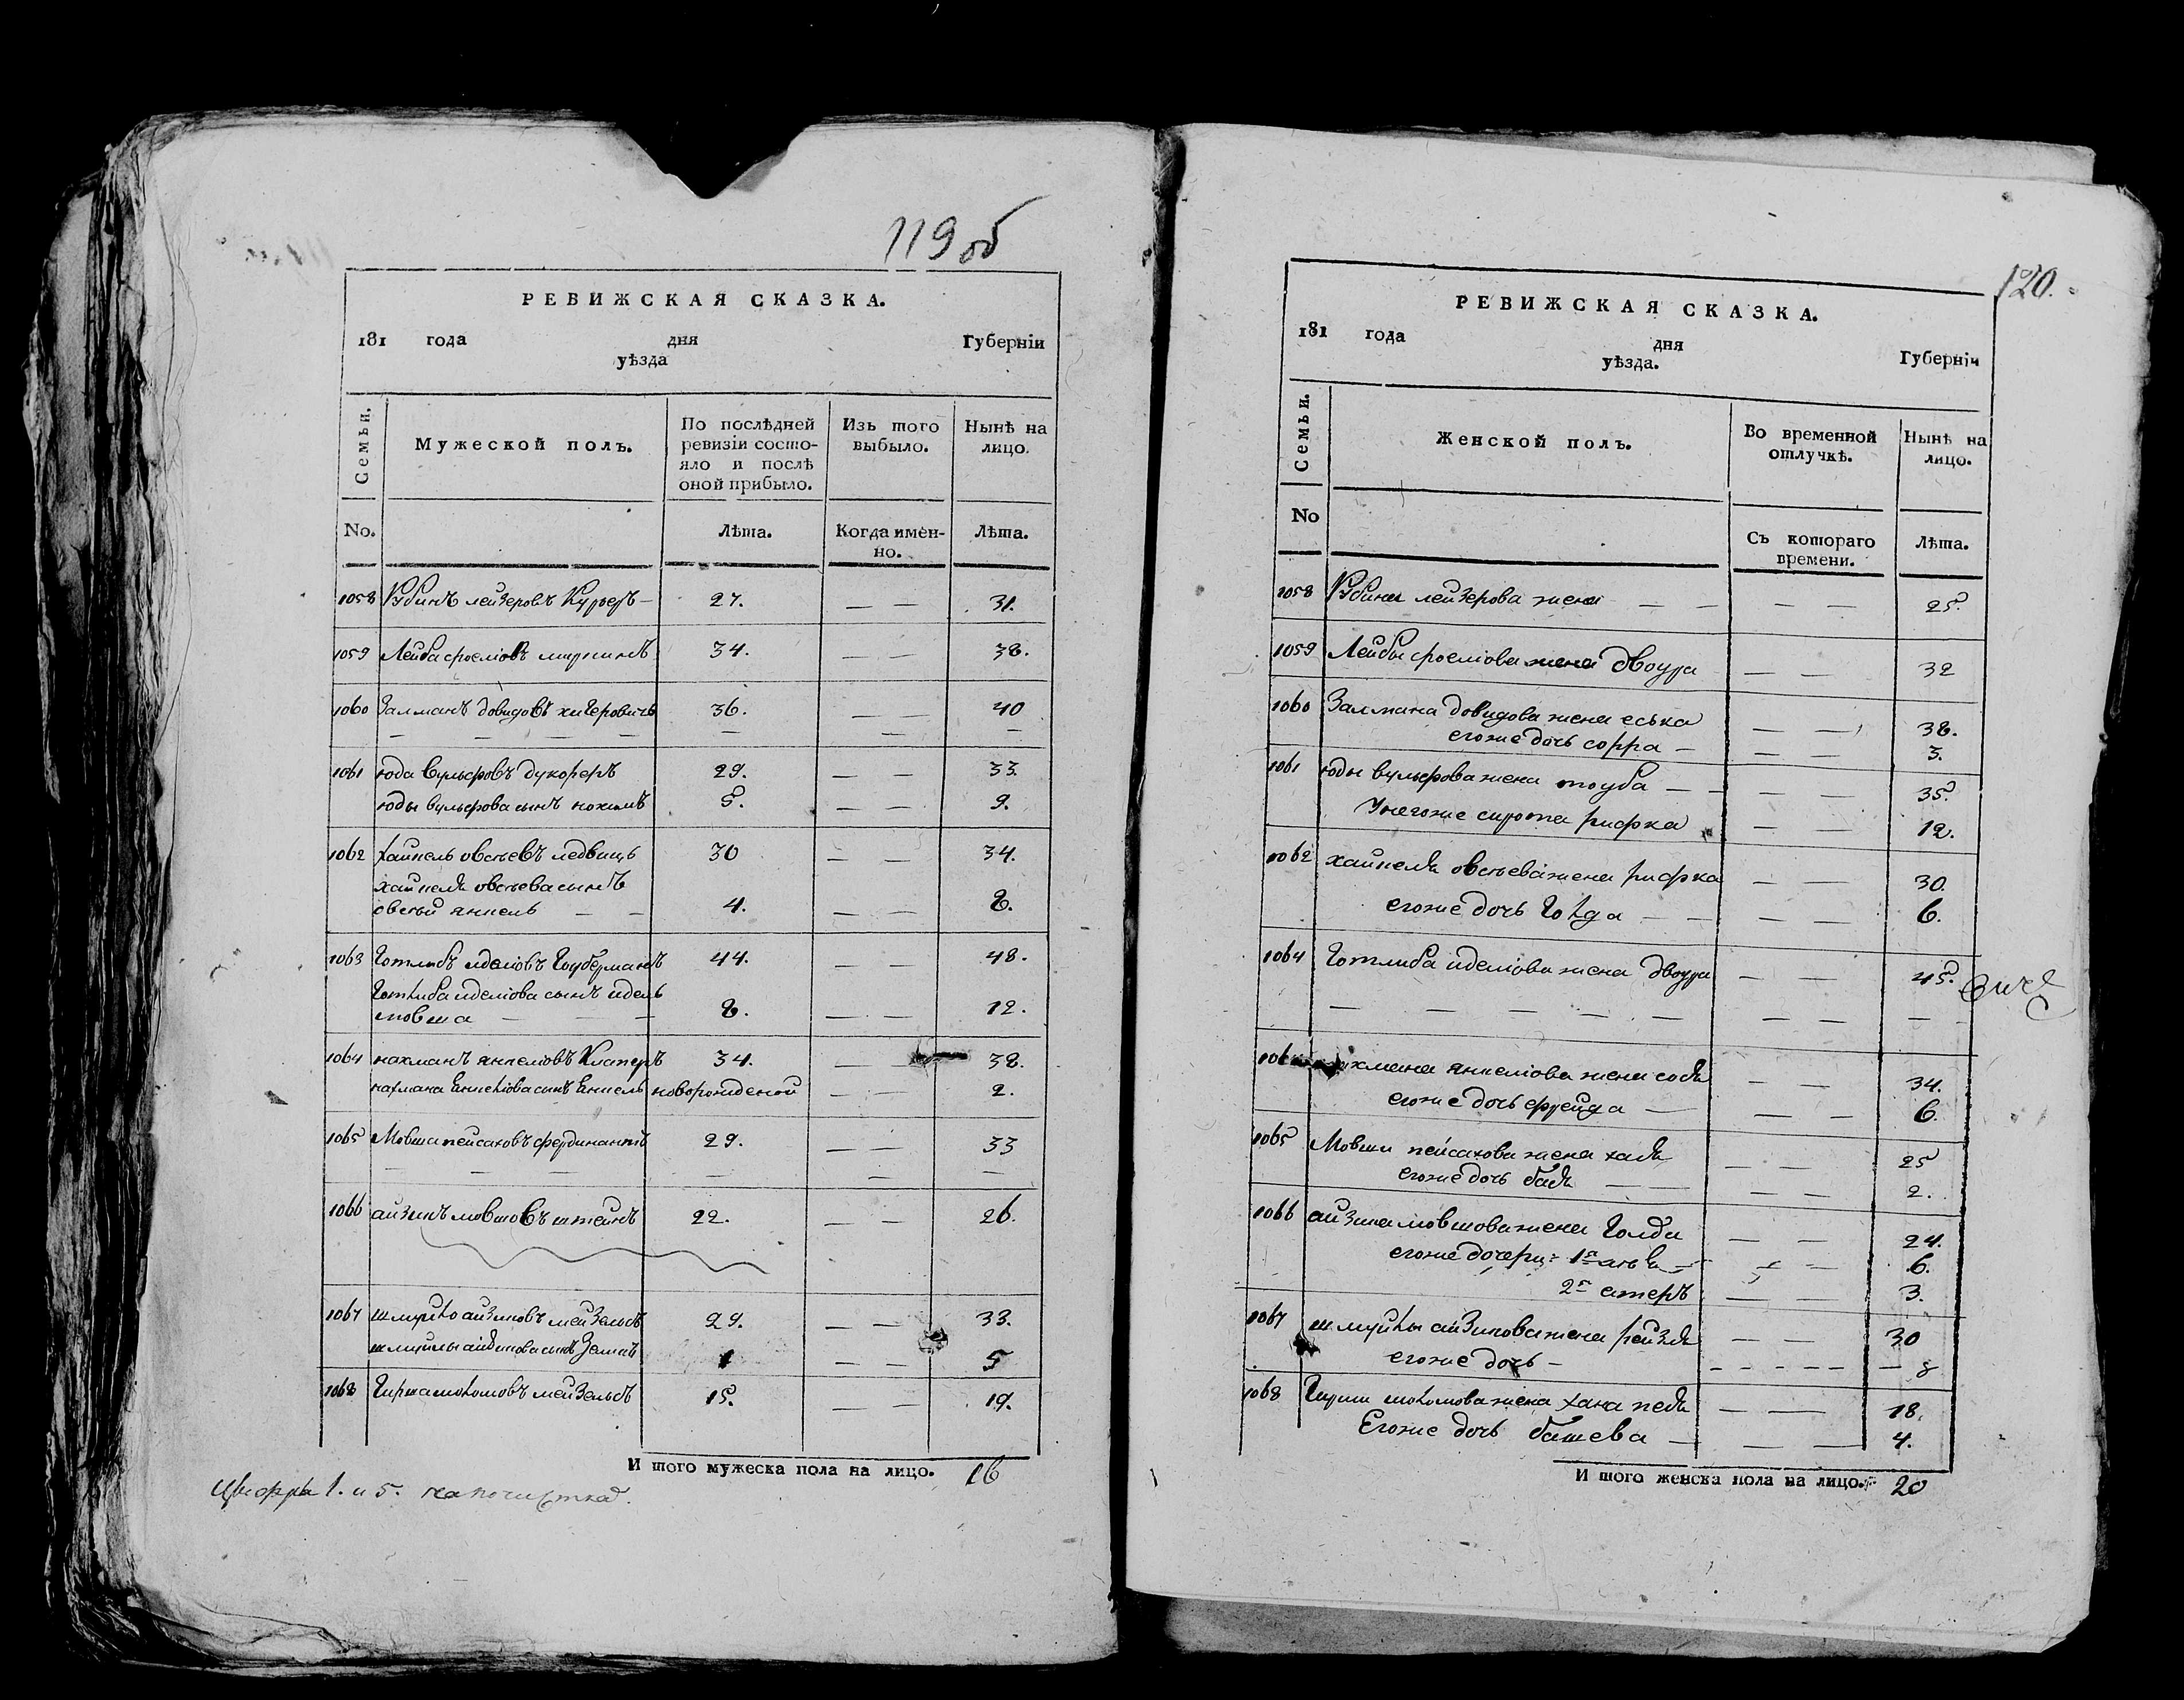 119 об
РЕВИЖСКАЯ СКАЗКА.
181 года дня Губерніи
уѣзда
Семьи.
Мужеской полъ.
По послѣдней ревизіи состо-
яло и послѣ
оной прибыло.
Изъ того выбыло.
Нынѣ на лицо.
No.
Лѣта.
Когда имен-
но.
Лѣта.
1058 Рубинъ лейзеровъ Курьеръ — 27. — — 31.
1059 Лейба сроеліовъ 34. — — 38.
1060 Залманъ довидовъ 36. — — 40
— — — — — — —
1061 юда вульфовъ дукореръ 29. — — 33.
юды вульфова сынъ нохимъ 5. — — 9.
1062 хайкель овсѣевъ ледвицъ 30 — — 34.
хайкеля овсѣева сынъ
овсей янкель — — 4. — — 8.
1063 Готлибъ иделіовъ Гоуберманъ 44. — — 48.
Готлиба иделіова сынъ идель
мовша — — — 8. — — 12.
1064 нахманъ янкеліовъ 34. — 38.
нахмана Енкеліова сынъ Енкель новорожденой — — 2.
1065 Мовша пейсаховъ фердинантъ 29. — — 33
— — — — — —
1066 айзикъ мовшовъ штейнъ 22. — — 26.
1067 шмуйло айзиковъ мейзельсъ 29. — — 33.
шмуйлы айзикова сынъ 1 — — 5
1068 Гирша мейзельсъ 15. — — 19.
И того мужеска пола на лицо. 16
Цифры 1. и 5. на почисткѣ.
120.
РЕВИЖСКАЯ СКАЗКА.
181 года дня Губерніи
уѣзда.
Семьи.
Женской полъ.
Во временной
отлучкѣ.
Нынѣ на лицо.
No
Съ котораго
времени.
Лѣта.
1058 Рубина лейзерова жена — — — — 25.
1059 Лейбы сроеліова жена двойра — — 32
1060 Залмана довидова жена еська — — 38.
егоже дочь сорра — — — 3.
1061 юды вульфова жена тоуба — — — — 35.
У негоже сирота рифка — — 12.
1062 хайкеля овсѣева жена рифка — — 30.
егоже дочь Голда — — — — 6.
1064 Готлиба иделіова жена двойра — — 45.
— — — — — — — —
106 нахмана янкеліова жена собля — — 34.
егоже дочь фрейда — — — 6.
1065 Мовши пейсахова жена хая — — 25
егоже дочь бася — — — — 2.
1066 айзика мовшова жена Голда — — 24.
егоже дочери: 1я — — — 6.
2я етеръ — — 3.
1067 шмуйлы айзикова жена рейзя — — 30
егоже дочь — — — — — — — 8
1068 Гирши жена хана песя — — 18.
Егоже дочь башева — — — 4.
И того женска пола на лицо. 20